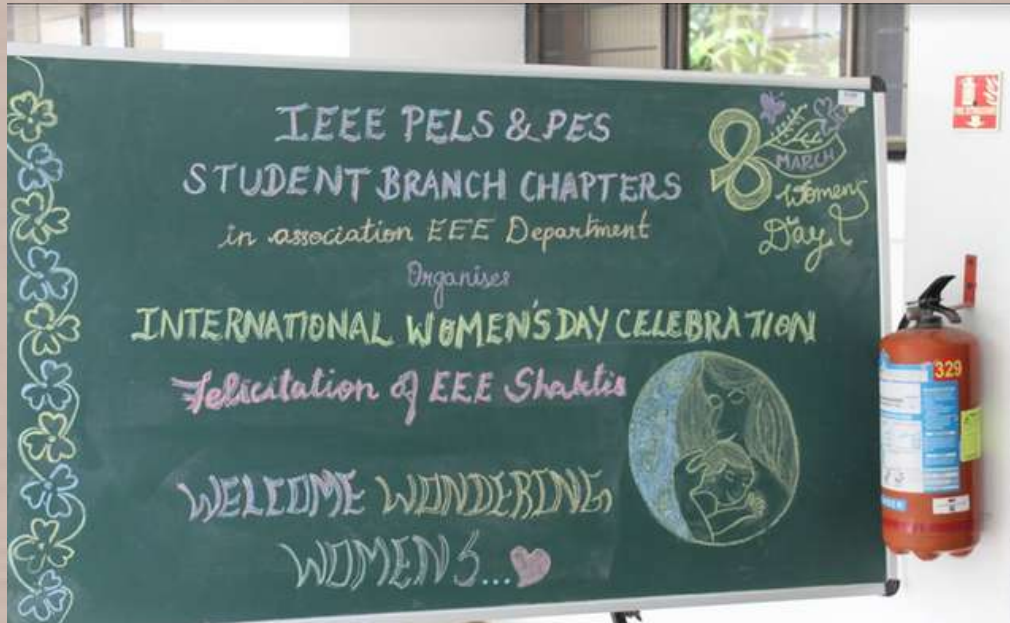 IEEE PELS & PES
STUDENT BRANCH CHAPTERS
in association EEE Department
Organises
INTERNATIONAL WOMEN'S DAY CELEBRATION
Felicitation of EEE Shaktis
WELCOME WONDERING
WOMENS...
8
MARCH
Womens
Day
329